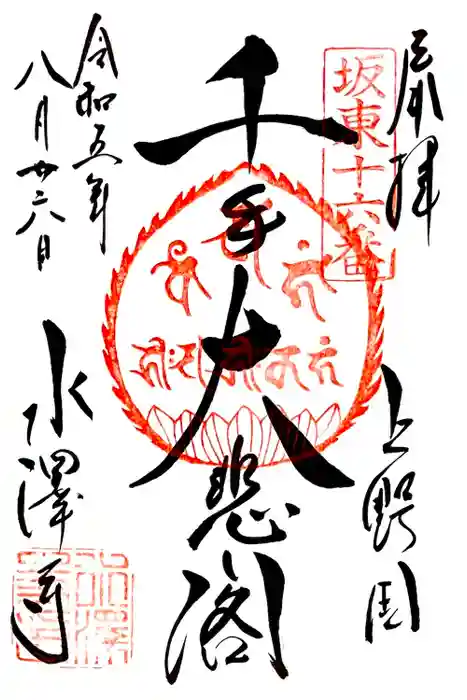 奉拝
坂東十六番
上野国
千手大悲閣
令和五年
八月廿六日
水澤寺